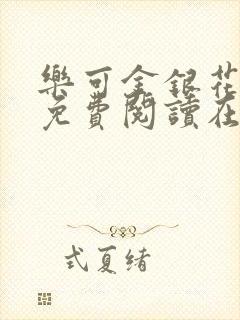 樂可金銀花
免費閱讀在
式夏緒